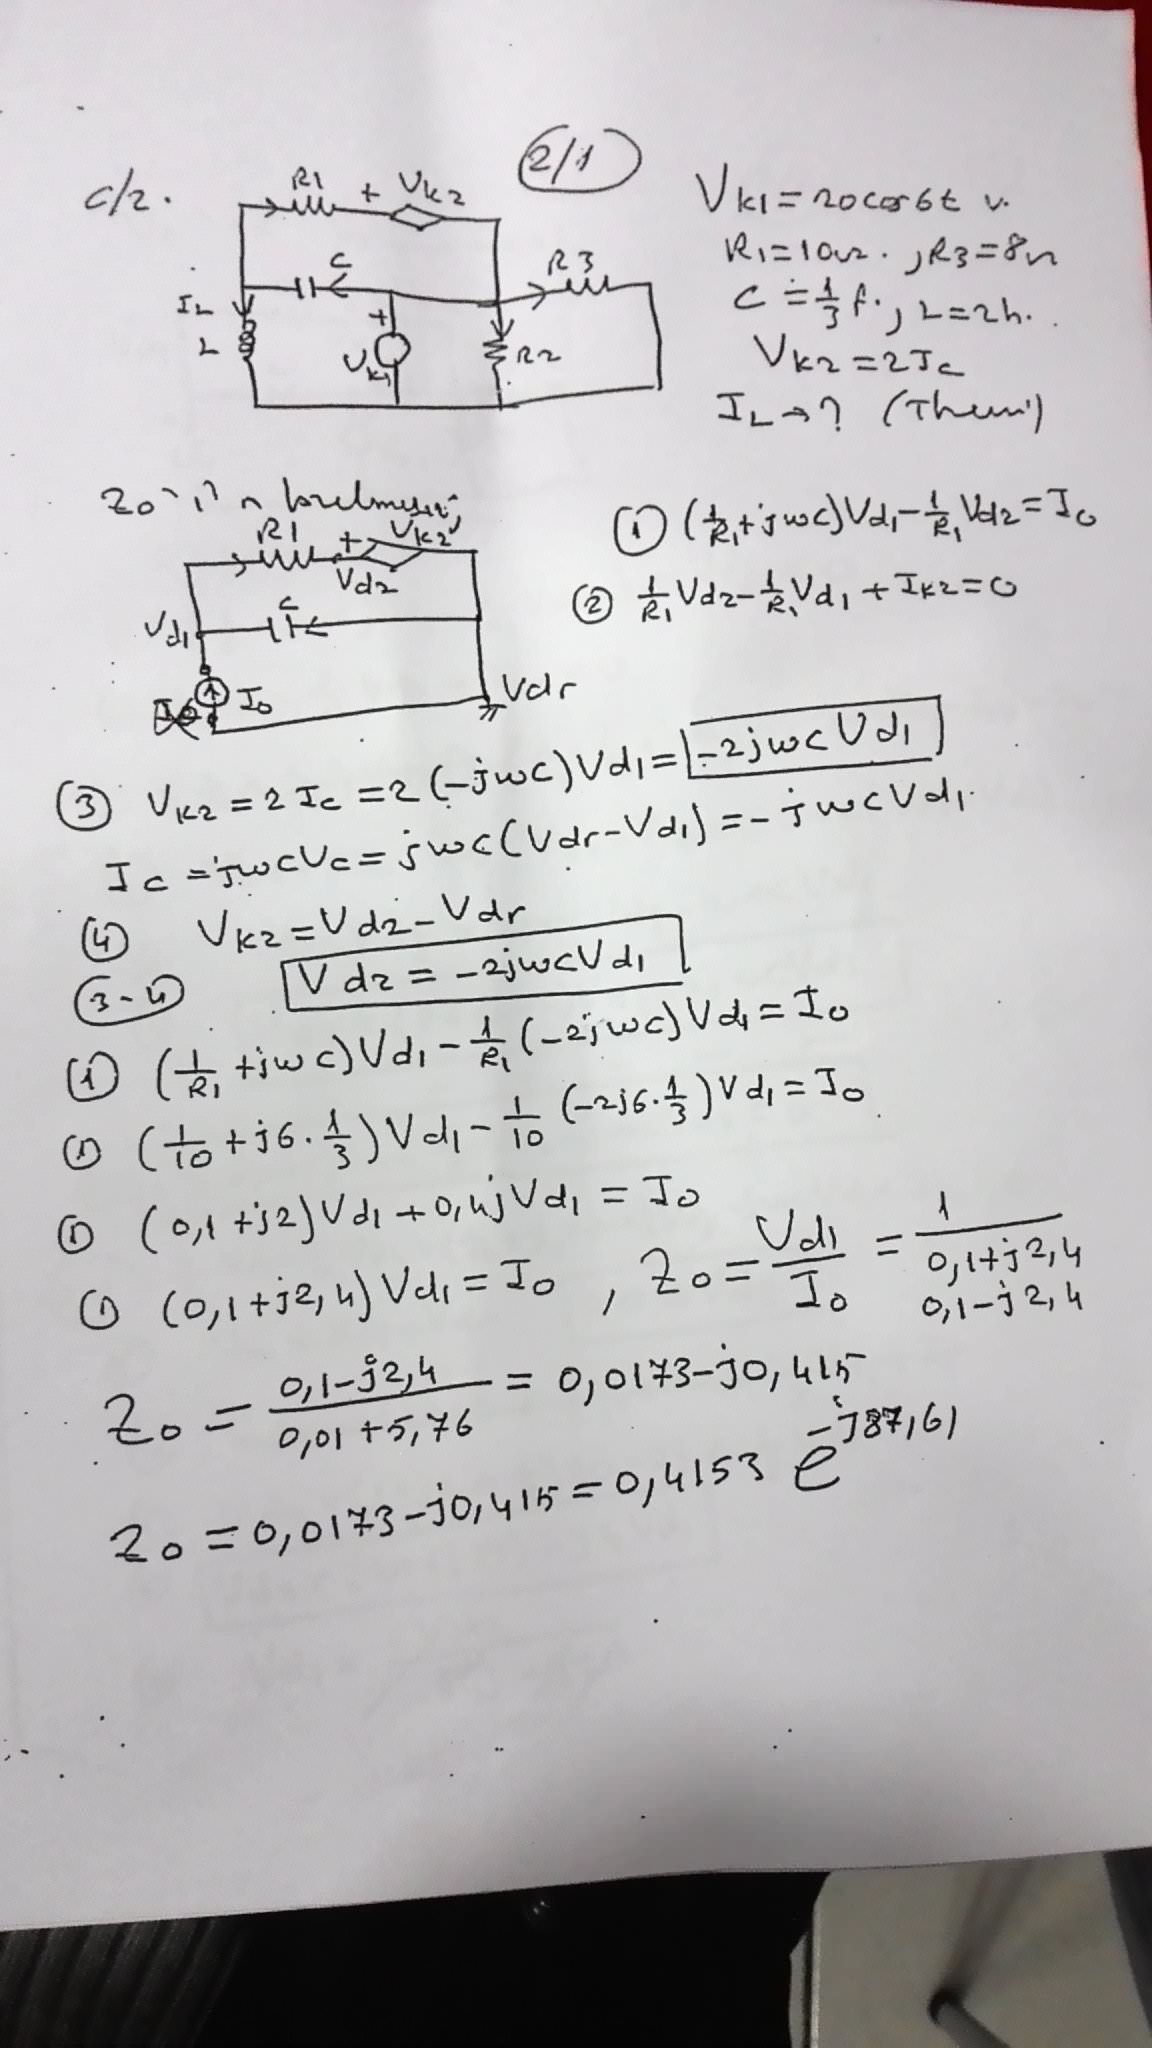 2/1
C/2.
R1 + Vk2
C
R3
IL
L
+
Vk1
R2
Vk1=20cos6t v.
R1=10Ω. ,R3=8Ω
C=1/3 f., L=2h.
Vk2=2Ic
IL→? (Theni)
Zo'ın
R1 + Vk2
Vd2
Vd1
C
Io
Vdr
① (1/R1+jwc)Vd1-1/R1 Vd2=Io
② 1/R1 Vd2-1/R1 Vd1+Ik2=0
③ Vk2=2Ic=2(-jwc)Vd1=-2jwcVd1
Ic=jwcVc=jwc(Vdr-Vd1)=-jwcVd1.
④ Vk2=Vd2-Vdr
3-4 Vd2=-2jwcVd1
① (1/R1+jwc)Vd1-1/R1(-2jwc)Vd1=Io
① (1/10+j6.1/3)Vd1-1/10(-2j6.1/3)Vd1=Io
① (0,1+j2)Vd1+0,4jVd1=Io
① (0,1+j2,4)Vd1=Io , Zo=Vd1/Io=1/0,1+j2,4
0,1-j2,4
Zo=0,1-j2,4/0,01+5,76=0,0173-j0,415
Zo=0,0173-j0,415=0,4153 e^-j87,61